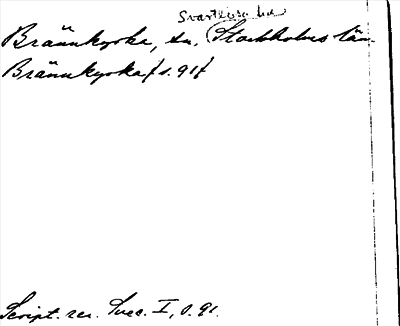 Svartlösa hd
Brännkyrka, sn. Stockholms län
Brännkyrka (s. 91)
Script. rer. Svec. I, s. 91.